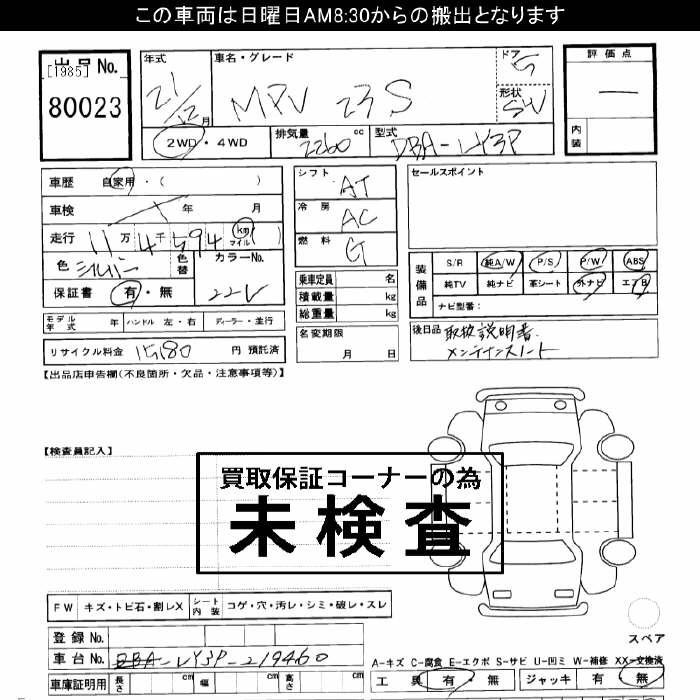 この車両は日曜日AM8:30からの搬出となります
出品No.
[1985]
80023
年式
21/12月
車名・グレード
MPV 23S
ドア
5
形状
SW
評価点
—
内装
2WD・4WD
排気量 2260 cc
型式 DBA-LY3P
車歴 自家用・( )
車検 年 月
走行 11万4千594 km マイル
色 シルバー 色替 カラーNo.
保証書 有・無 22V
モデル年式 年 ハンドル 左・右 ディーラー・並行
リサイクル料金 15180 円 預託済
シフト AT
冷房 AC
燃料 G
乗車定員 名
積載量 kg
総重量 kg
名変期限
月 日
セールスポイント
装備品
S/R 純A/W P/S P/W ABS
純TV 純ナビ 革シート 外ナビ エアB
ナビ型番:
後日品 取扱説明書.
メンテナンスノート
【出品店申告欄(不良箇所・欠品・注意事項等)】
【検査員記入】
買取保証コーナーの為
未検査
FW キズ・トビ石・割レX シート内装 コゲ・穴・汚レ・シミ・破レ・スレ
登録No.
車台No. DBA-LY3P-219460
車庫証明用 長さ cm 幅 cm 高さ cm
スペア
A-キズ C-腐食 E-エクボ S-サビ U-凹ミ W-補修 XX-交換済
工具 有・無 ジャッキ 有・無